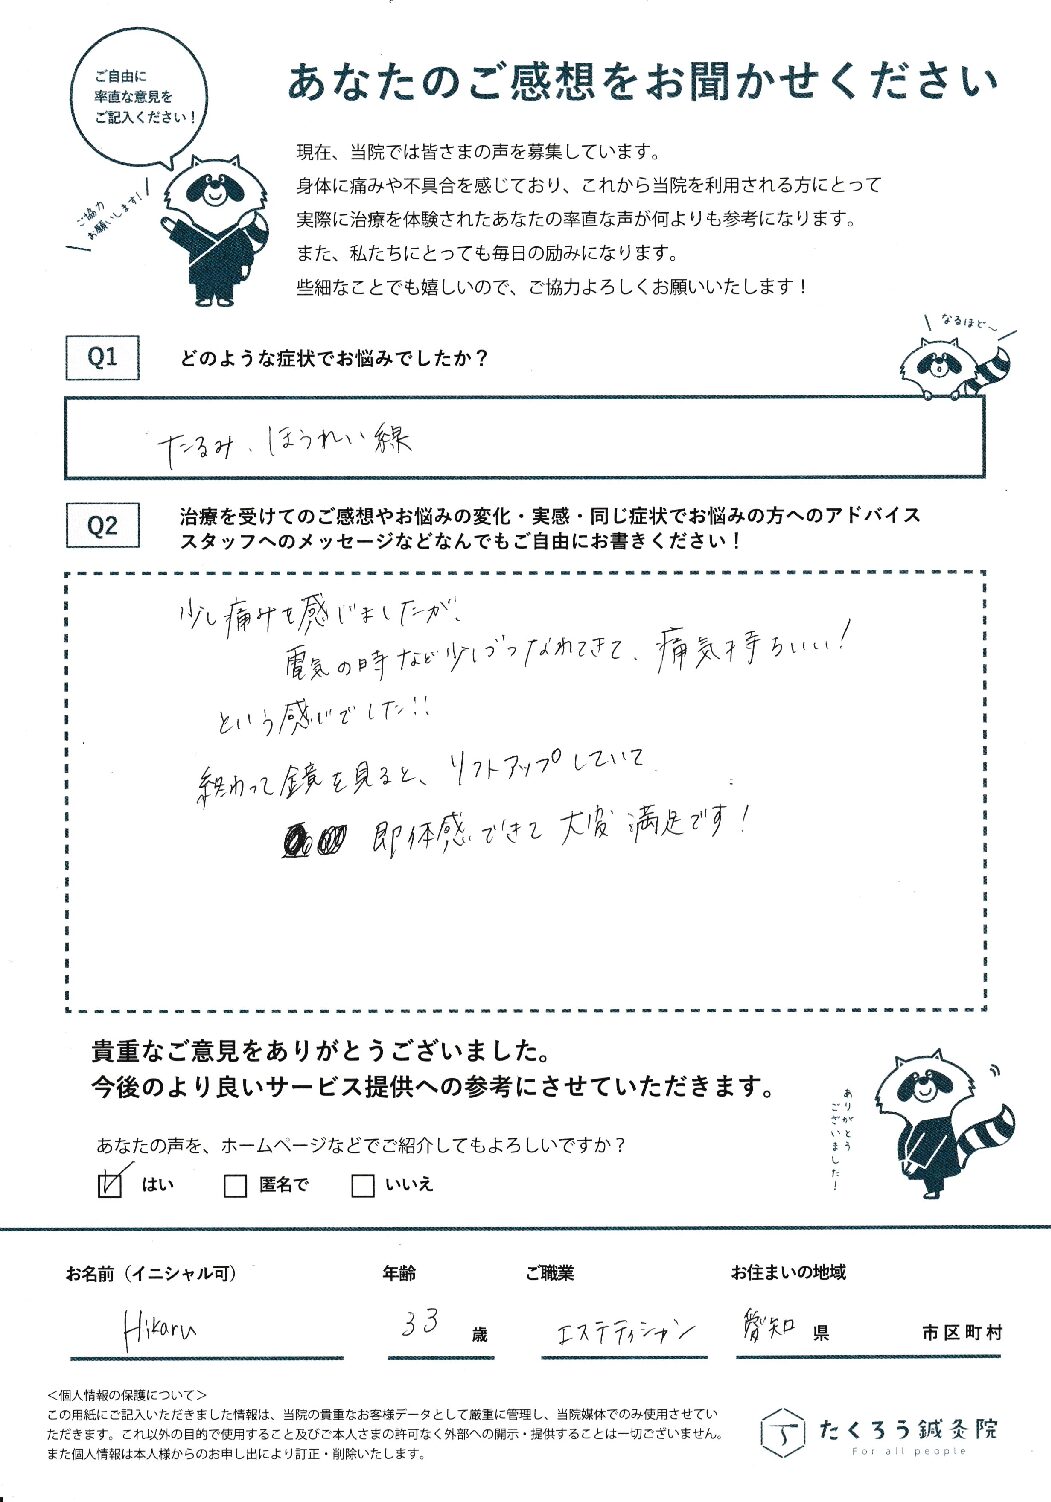 ご自由に
率直な意見を
ご記入ください！
ご協力
お願いします！
あなたのご感想をお聞かせください
現在、当院では皆さまの声を募集しています。
身体に痛みや不具合を感じており、これから当院を利用される方にとって
実際に治療を体験されたあなたの率直な声が何よりも参考になります。
また、私たちにとっても毎日の励みになります。
些細なことでも嬉しいので、ご協力よろしくお願いいたします！
なるほど〜
Q1 どのような症状でお悩みでしたか？
たるみ、ほうれい線
Q2 治療を受けてのご感想やお悩みの変化・実感・同じ症状でお悩みの方へのアドバイス
スタッフへのメッセージなどなんでもご自由にお書きください！
少し痛みを感じましたが、
電気の時など少しづつなれてきて、痛気持ちいい！
という感じでした!!
終わって鏡を見ると、リフトアップしていて
即体感できて大変満足です！
貴重なご意見をありがとうございました。
今後のより良いサービス提供への参考にさせていただきます。
ありがとう
ございました！
あなたの声を、ホームページなどでご紹介してもよろしいですか？
はい 匿名で いいえ
お名前（イニシャル可） 年齢 ご職業 お住まいの地域
Hikaru 33 歳 エステティシャン 愛知 県 市区町村
＜個人情報の保護について＞
この用紙にご記入いただきました情報は、当院の貴重なお客様データとして厳重に管理し、当院媒体でのみ使用させてい
ただきます。これ以外の目的で使用すること及びご本人さまの許可なく外部への開示・提供することは一切ございません。
また個人情報は本人様からのお申し出により訂正・削除いたします。
たくろう鍼灸院
For all people